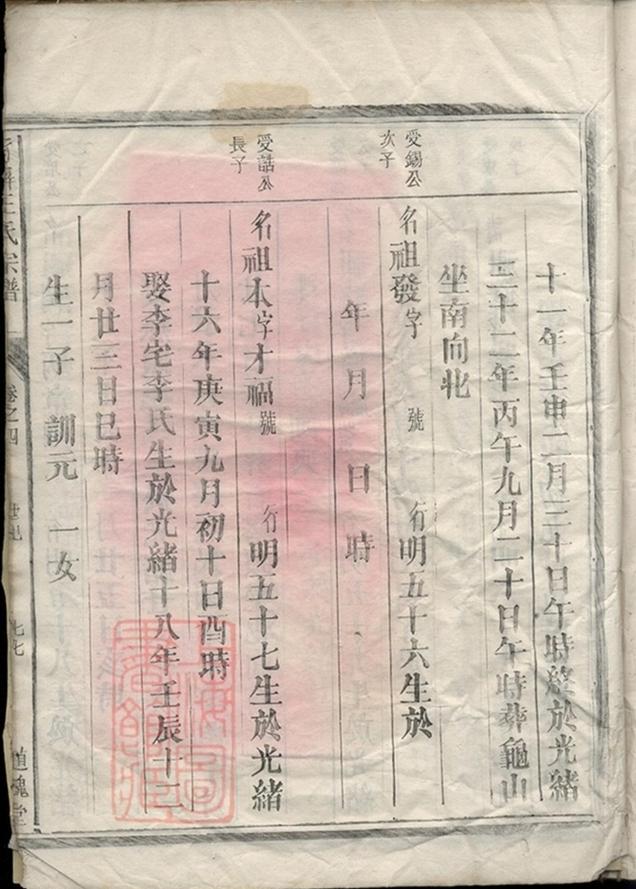 十一年壬申二月三十日午時終於光緒
三十二年丙午九月二十日午時葬龜山
坐南向北
受錫公
次子
名祖發字 號 行明五十六生於
年 月 日 時
受話公
長子
名祖本字才福號 行明五十七生於光緒
十六年庚寅九月初十日酉時
娶李宅李氏生於光緒十八年壬辰十二
月廿三日巳時
生一子 訓元 一女
王氏宗譜 卷之四 世紀 七七 道魂堂